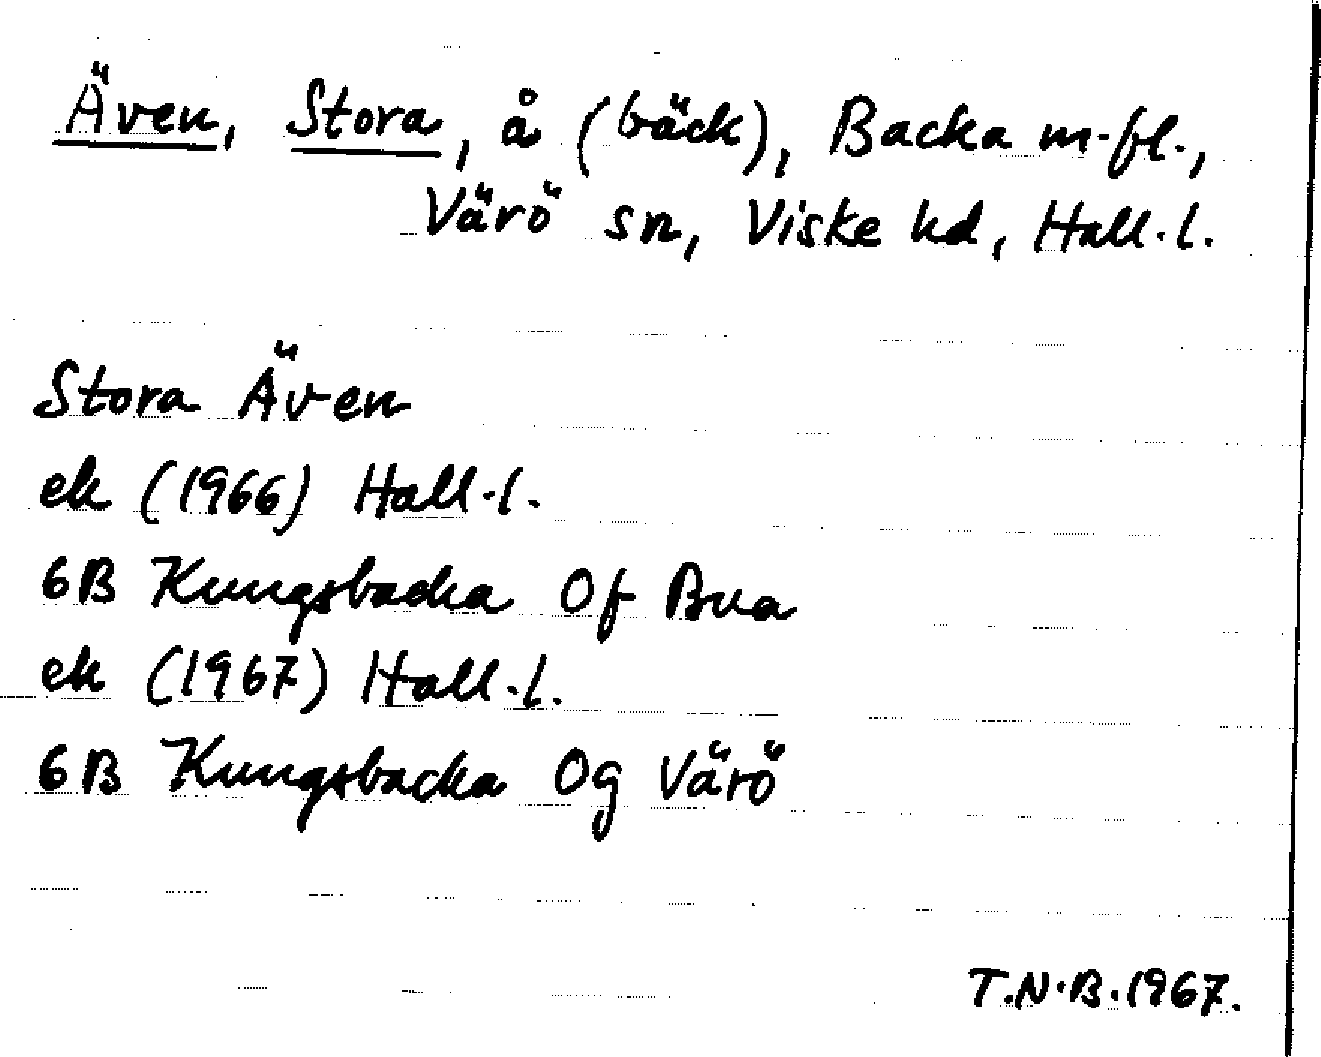 Även, Stora, å (bäck), Backa m.fl.,
Värö sn, Viske hd, Hall.l.
Stora Även
ek (1966) Hall.l.
6B Kungsbacka 0f Bua
ek (1967) Hall.l.
6B Kungsbacka 0g Värö
T.N.B.1967.